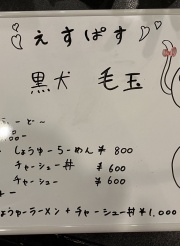 えすぱす
黒犬 毛玉
ーど～
しょうゆらーめん ¥ 800
チャーシュー丼 ¥ 600
チャーシュー ¥ 600
ょうゆラーメン + チャーシュー丼 ¥1,000